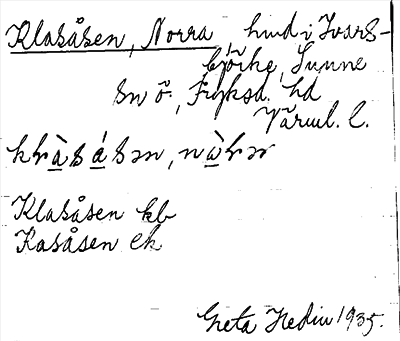 Klasåsen, Norra hmd i Ivars-
björke, Sunne
sn ö., Fryksd. hd
Värml. l.
klàsásən, nàrər
Klasåsen kb
Kasåsen ek
Greta Hedin 1935.